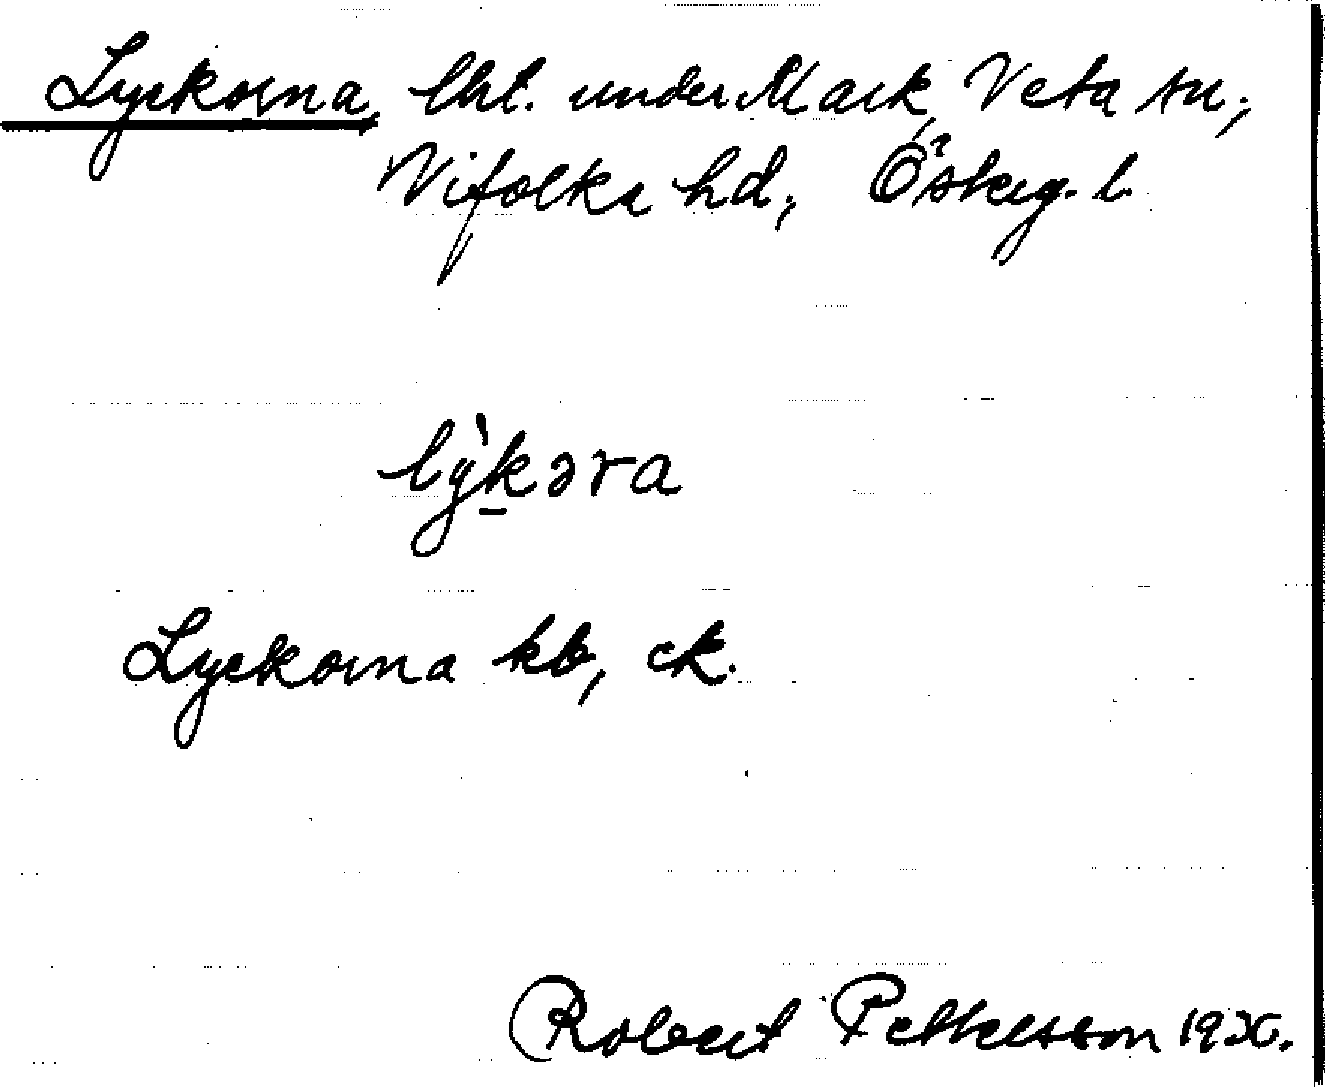 Lyckorna, lht. under Mark, Veta sn;
Vifolka hd, Östeg. l.
lỳk̠əra
Lyckorna kb, ck.
Robert Pettersson